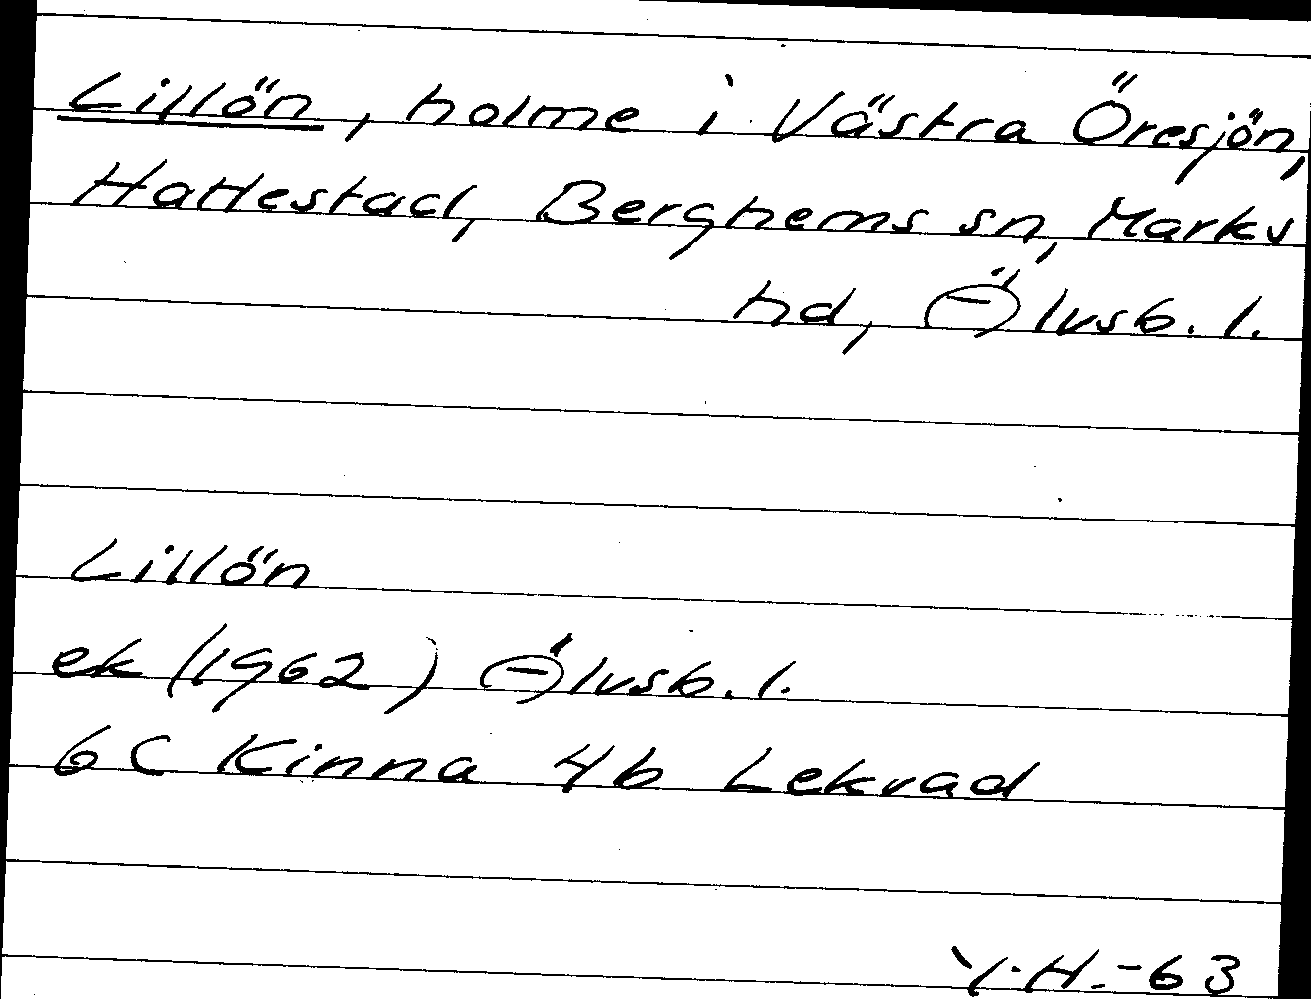 Lillön, holme i Västra Öresjön,
Hattestad, Berghems sn, Marks
hd, Älvsb. l.
Lillön
ek (1962) Älvsb. l.
6C Kinna 4b Lekvad
Y.H.-63